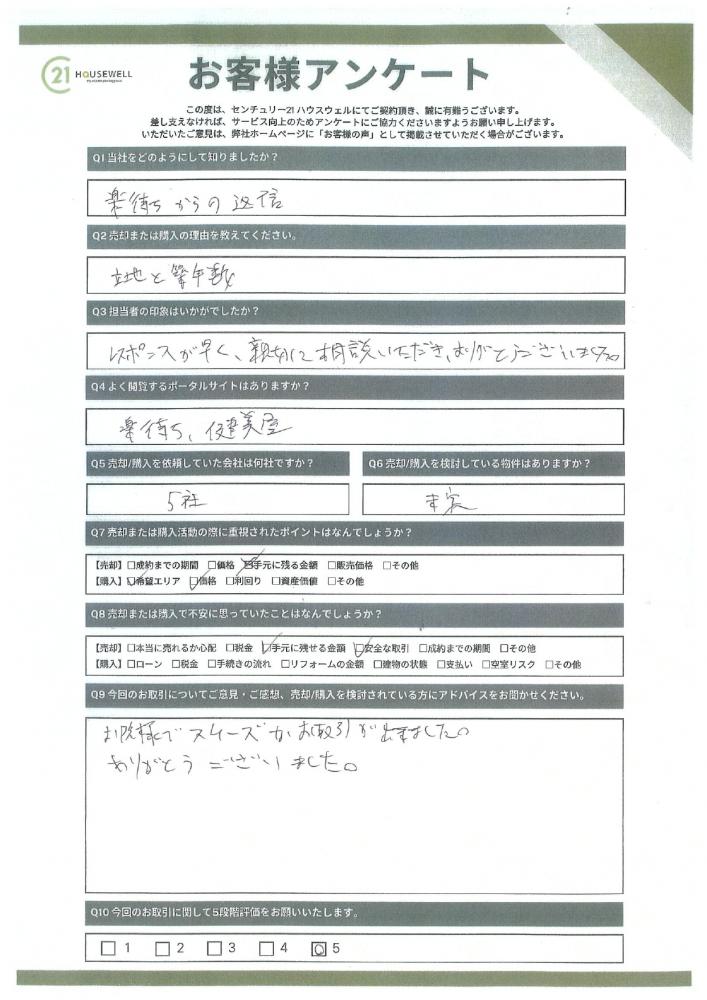 21 HOUSEWELL
お客様アンケート
この度は、センチュリー21ハウスウェルにてご契約頂き、誠に有難うございます。
差し支えなければ、サービス向上のためアンケートにご協力くださいますようお願い申し上げます。
いただいたご意見は、弊社ホームページに「お客様の声」として掲載させていただく場合がございます。
Q1 当社をどのようにして知りましたか？
楽待ちからの返信
Q2 売却または購入の理由を教えてください。
立地と築年数
Q3 担当者の印象はいかがでしたか？
レスポンスが早く、親切に相談いただき、ありがとうございました。
Q4 よく閲覧するポータルサイトはありますか？
楽待ち、健美屋
Q5 売却/購入を依頼していた会社は何社ですか？
Q6 売却/購入を検討している物件はありますか？
5社
Q7 売却または購入活動の際に重視されたポイントはなんでしょうか？
【売却】□成約までの期間 □価格 ☑手元に残る金額 □販売価格 □その他
【購入】☑希望エリア ☑価格 □利回り □資産価値 □その他
Q8 売却または購入で不安に思っていたことはなんでしょうか？
【売却】□本当に売れるか心配 □税金 ☑手元に残せる金額 ☑安全な取引 □成約までの期間 □その他
【購入】□ローン □税金 □手続きの流れ □リフォームの金額 □建物の状態 □支払い □空室リスク □その他
Q9 今回のお取引についてご意見・ご感想、売却/購入を検討されている方にアドバイスをお聞かせください。
お陰様でスムーズなお取引が出来ました。
ありがとうございました。
Q10 今回のお取引に関して5段階評価をお願いいたします。
□ 1 □ 2 □ 3 □ 4 ☑ 5